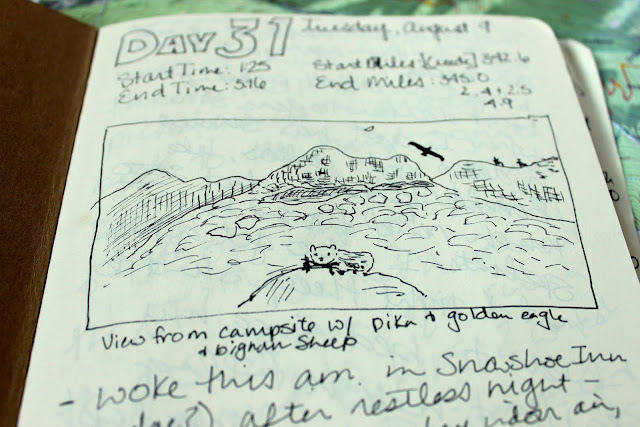 DAY 31 Tuesday, August 9
Start Time: 1:25 Start Miles 342.6
End Time: 5:16 End Miles: 345.0
2.4 + 2.5
4.9
View from campsite w/ pika & golden eagle
& bighorn sheep
- woke this a.m. in Snowshoe Inn
after restless night -
air,